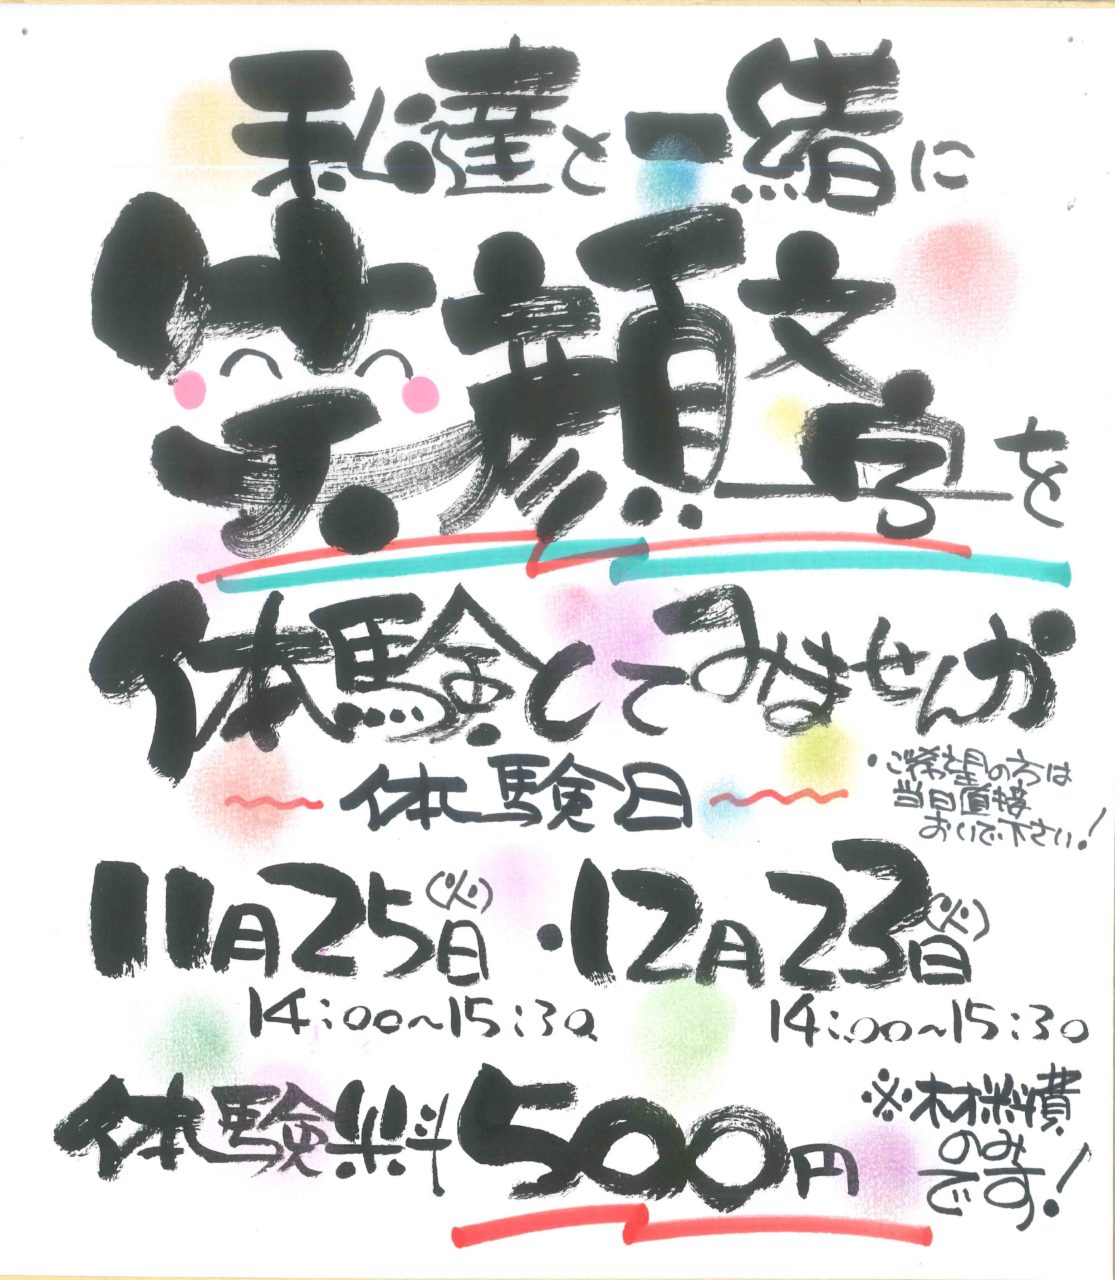 私達と一緒に
笑顔文字を
体験してみませんか
体験日
・ご希望の方は
当日直接
おいで下さい!
11月25日(火)・12月23日(火)
14:00~15:30 14:00~15:30
体験料500円
※材料費
のみ
です!